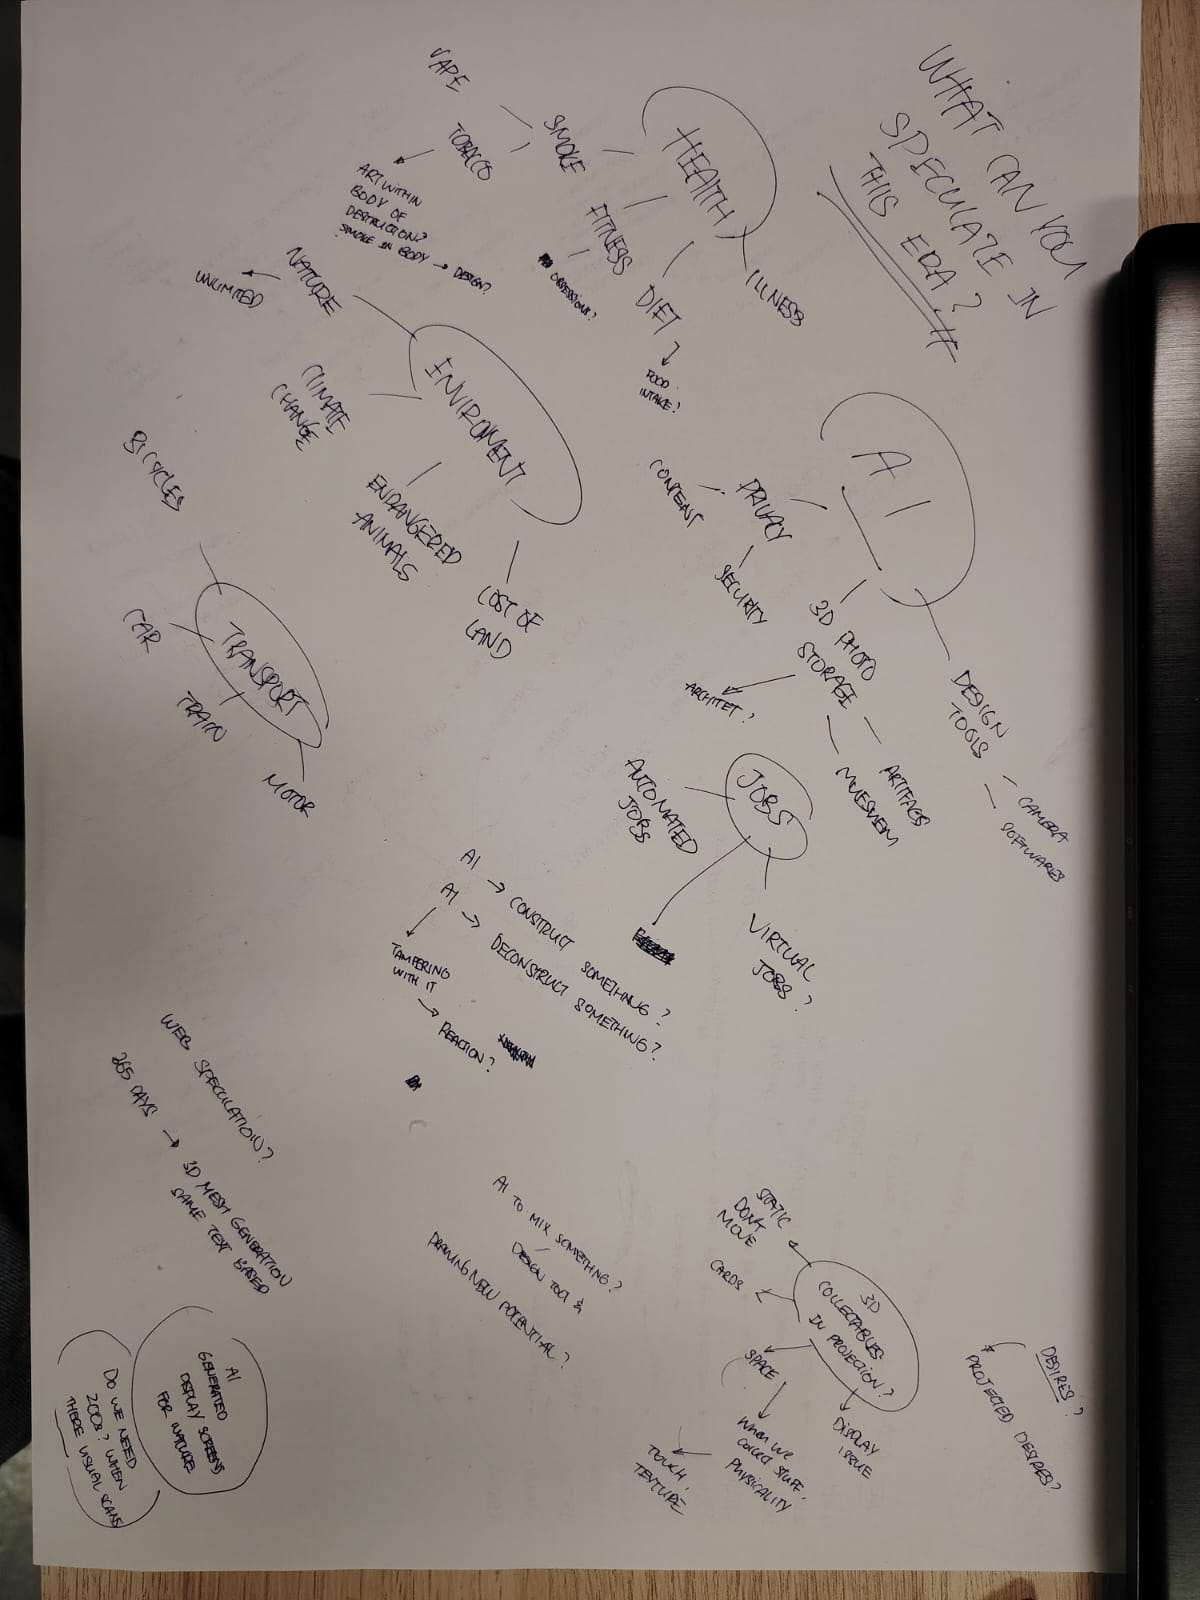 WHAT CAN YOU
SPECULATE IN
THIS ERA?
HEALTH
SMOKE
VAPE
TOBACCO
ART WITHIN
BODY OF
DESTRUCTION?
SMOKE IN BODY → DESIGN?
FITNESS
OBSESSIONS?
DIET
FOOD
INTAKE?
ILLNESS
ENVIROMENT
NATURE
UNLIMITED
CLIMATE
CHANGE
ENDANGERED
ANIMALS
COST OF
LAND
TRANSPORT
BICYCLES
CAR
TRAIN
MOTOR
AI
PRIVACY
CONTENT
SECURITY
3D PHOTO
STORAGE
ARCHITET?
MUESWEM
ARTIFACS
DESIGN
TOOLS
CAMERA
SOFTWARES
JOBS
AUTOMATED
JOBS
VIRTUAL
JOBS?
AI → CONSTRUCT SOMETHING?
AI → DECONSTRUCT SOMETHING?
TAMPERING
WITH IT
REACTION?
WEB SPECULATION?
265 DAYS → 3D MESH GENERATION
SAME TEXT BASED
AI TO MIX SOMETHING?
DESIGN TOOL &
NEW POTENTIAL?
3D
COLLECTABLES
IN PROJECTION?
STATIC
DONT
MOVE
CARDS
SPACE
WHEN WE
COLLECT STUFF,
PHYSICALITY
TOUCH,
TEXTURE
DISPLAY
ISSUE
DESIRES?
PROJECTED DESIRES?
AI
GENERATED
DISPLAY SCREENS
FOR NATURE
DO WE NEED
ZOOS? WHEN
THERE VISUAL SCANS